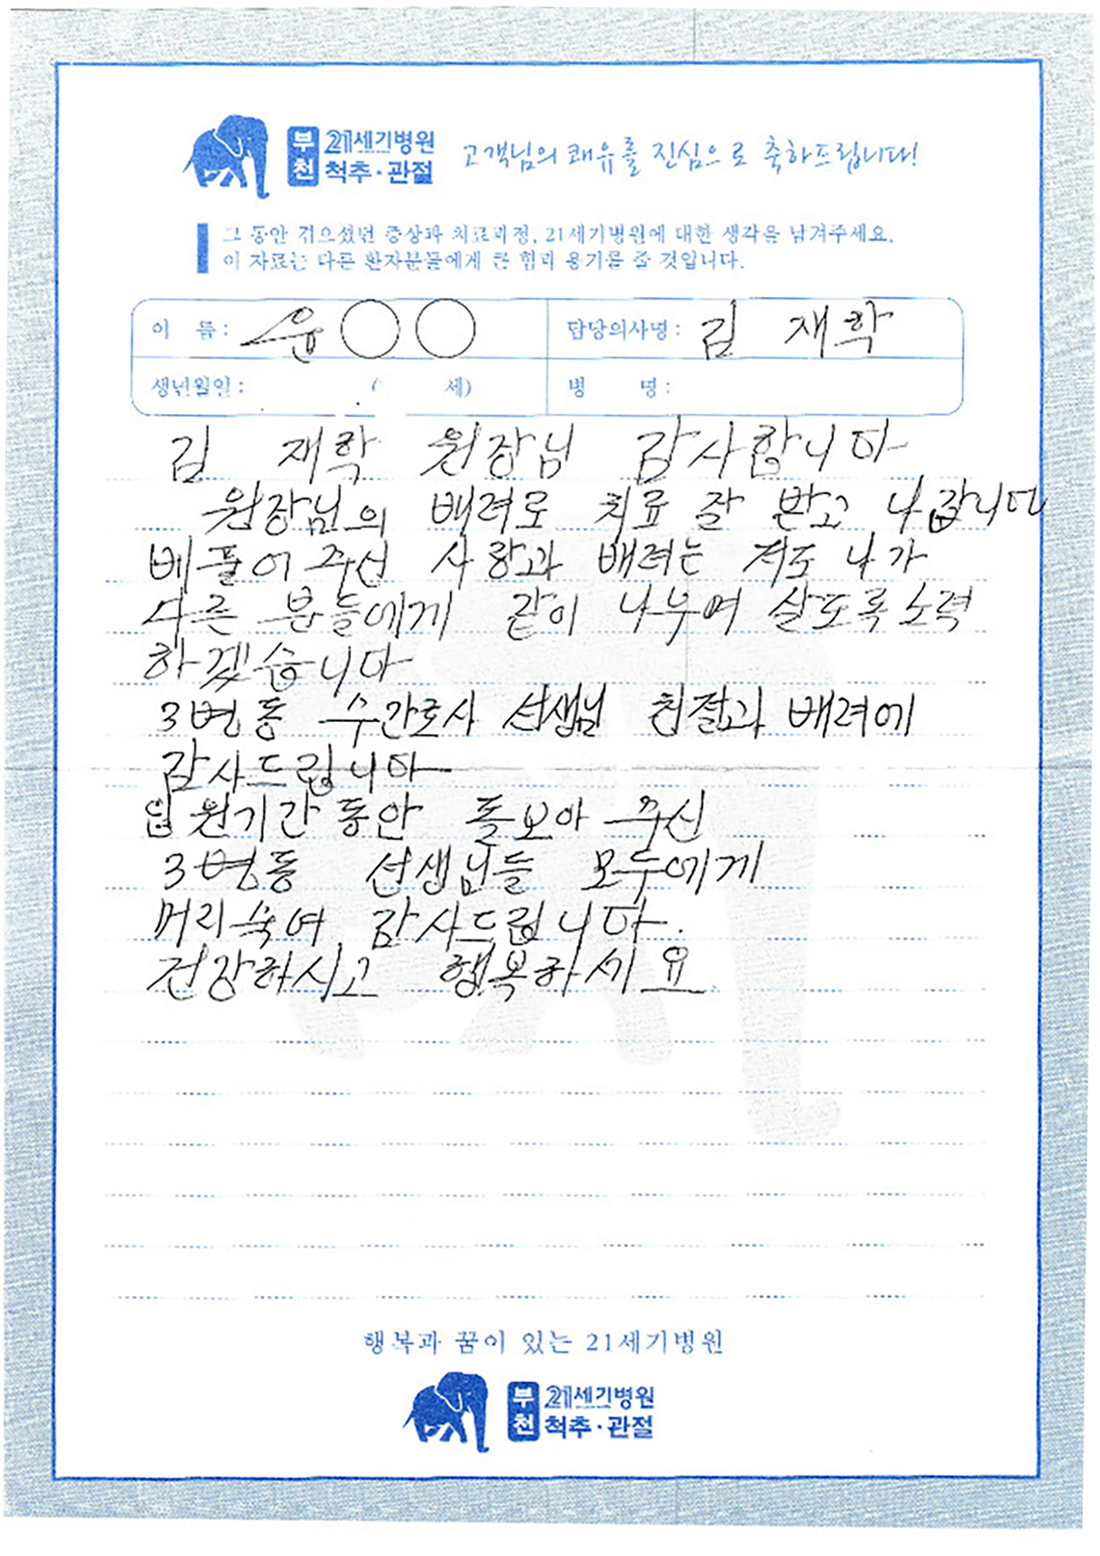 부천 21세기병원 척추·관절
고객님의 쾌유를 진심으로 축하드립니다!
그 동안 겪으셨던 증상과 치료과정, 21세기병원에 대한 생각을 남겨주세요.
이 자료는 다른 환자분들에게 큰 힘과 용기를 줄 것입니다.
이 름 : 윤○○ 담당의사명 : 김 재학
생년월일 : ( 세) 병 명 :
김 재학 원장님 감사합니다
원장님의 배려로 치료 잘 받고 나갑니다
베풀어 주신 사랑과 배려는 저도 나가
다른 분들에게 같이 나누며 살도록 노력
하겠습니다
3병동 수간호사 선생님 친절과 배려에
감사드립니다
입원기간 동안 돌보아 주신
3병동 선생님들 모두에게
머리숙여 감사드립니다.
건강하시고 행복하세요
행복과 꿈이 있는 21세기병원
부천 21세기병원 척추·관절